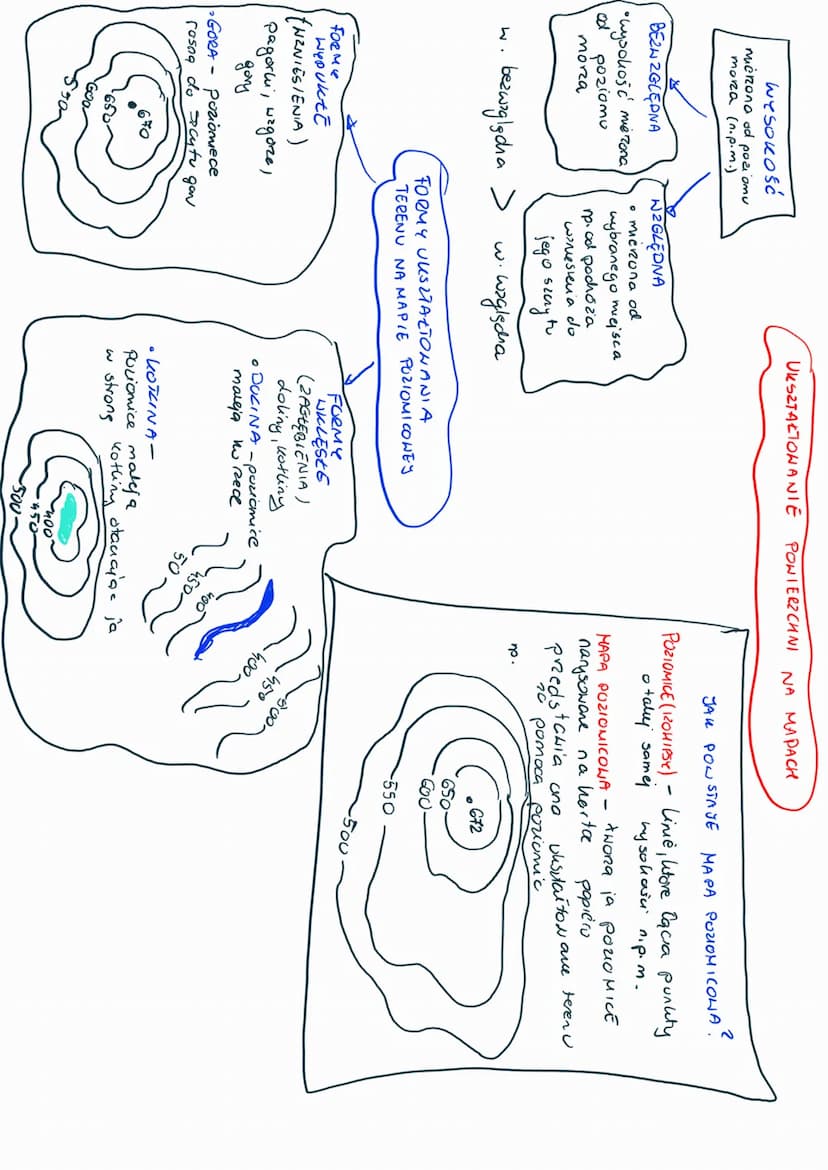 UKSZTAŁTOWANIE POWIERZCHNI NA MAPACH
WYSOKOŚĆ
mierzona od poziomu
morza (n.p.m.)
BEZWZGLĘDNA
• wysokość mierzona
od poziomu
morza
WZGLĘDNA
• mierzona od
wybranego miejsca
np. od podnóża
wzniesienia do
jego szczytu
w. bezwzględna > w. względna
JAK POWSTAJE MAPA POZIOMICOWA?
POZIOMICE (IZOHIPSY) - linie, które łączą punkty
o takiej samej wysokości n.p.m.
MAPA POZIOMICOWA - tworzą ją POZIOMICE
narysowane na kartce papieru
przedstawia ona ukształtowanie terenu
za pomocą poziomic
np.
672
650
600
550
500
FORMY UKSZTAŁTOWANIA
TERENU NA MAPIE POZIOMICOWEJ
FORMY
WYPUKŁE
(WZNIESIENIA)
pagórki, wzgórza,
góry
• GÓRA - poziomice
rosną do szczytu góry
670
650
600
550
FORMY
WKLĘSŁE
(ZAGŁĘBIENIA)
doliny, kotliny
• DOLINA - poziomice
maleją ku rzece
• KOTLINA -
poziomice maleją
w stronę kotliny otaczając ją
400
450
500